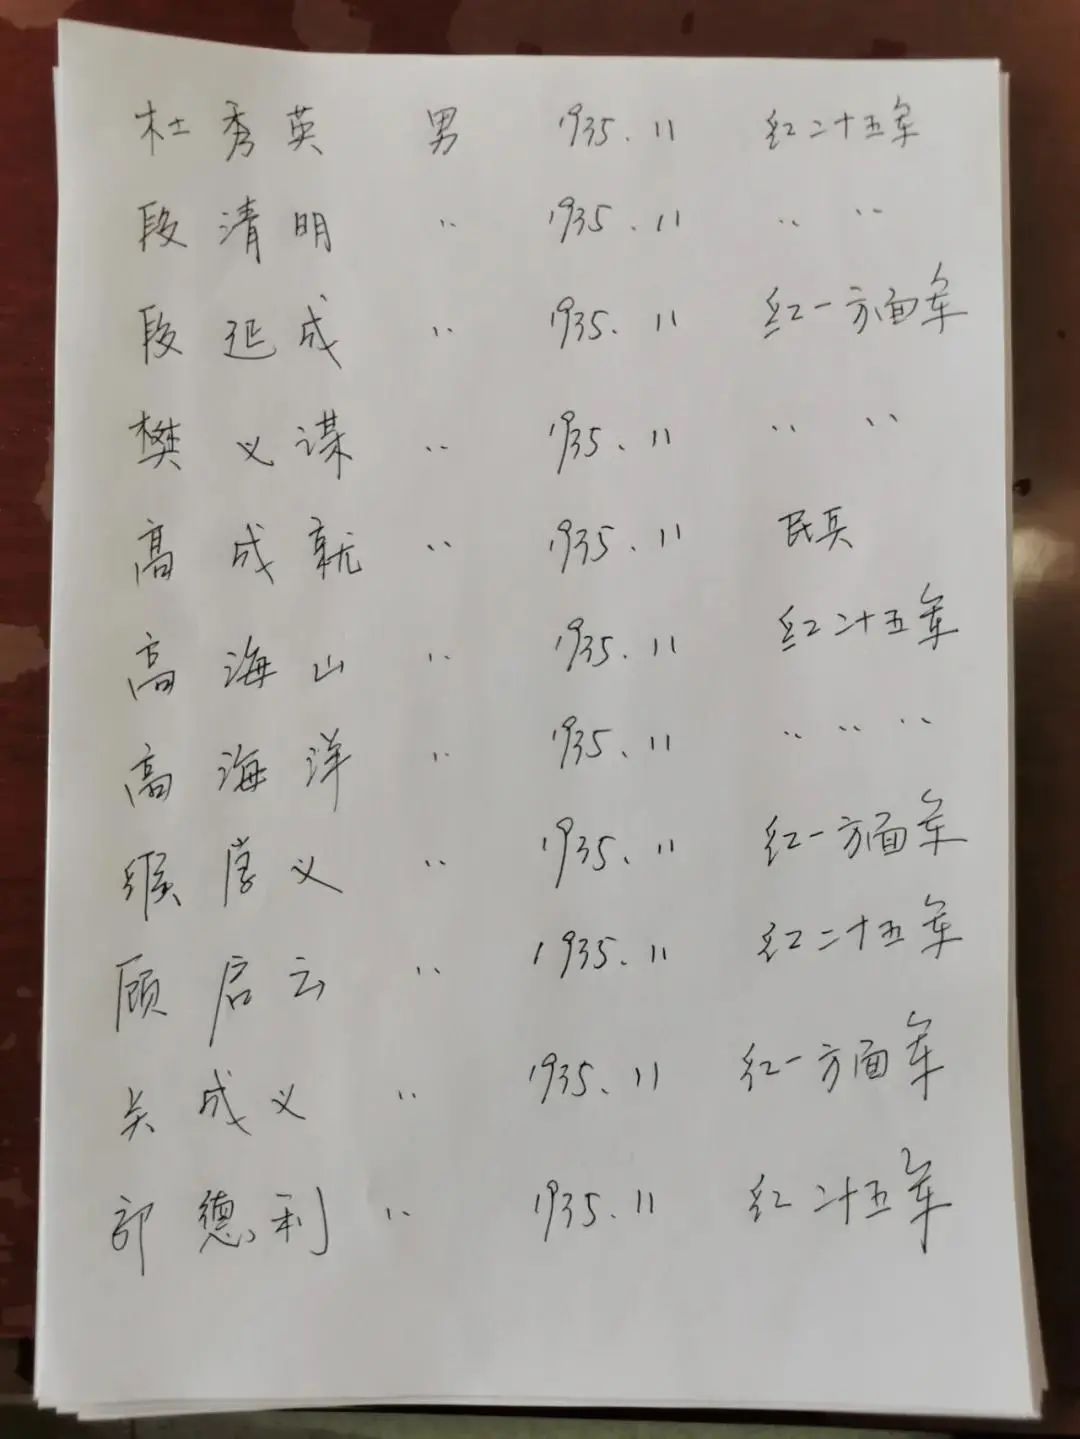 杜秀英 男 1935.11 红二十五军
段清明 〃 1935.11 〃 〃
段延成 〃 1935.11 红一方面军
樊义谋 〃 1935.11 〃 〃
高成就 〃 1935.11 民兵
高海山 〃 1935.11 红二十五军
高海洋 〃 1935.11 〃 〃 〃
缑学义 〃 1935.11 红一方面军
顾启云 〃 1935.11 红二十五军
关成义 〃 1935.11 红一方面军
德利 〃 1935.11 红二十五军